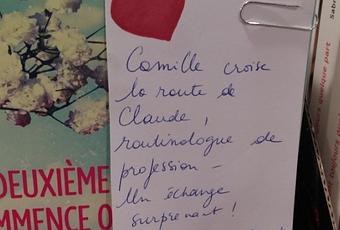 Camille croise
la route de
Claude,
routinologue de
profession -
Un échange
surprenant !
DEUXIÈME
MMENCE O
Sabri
quelque part